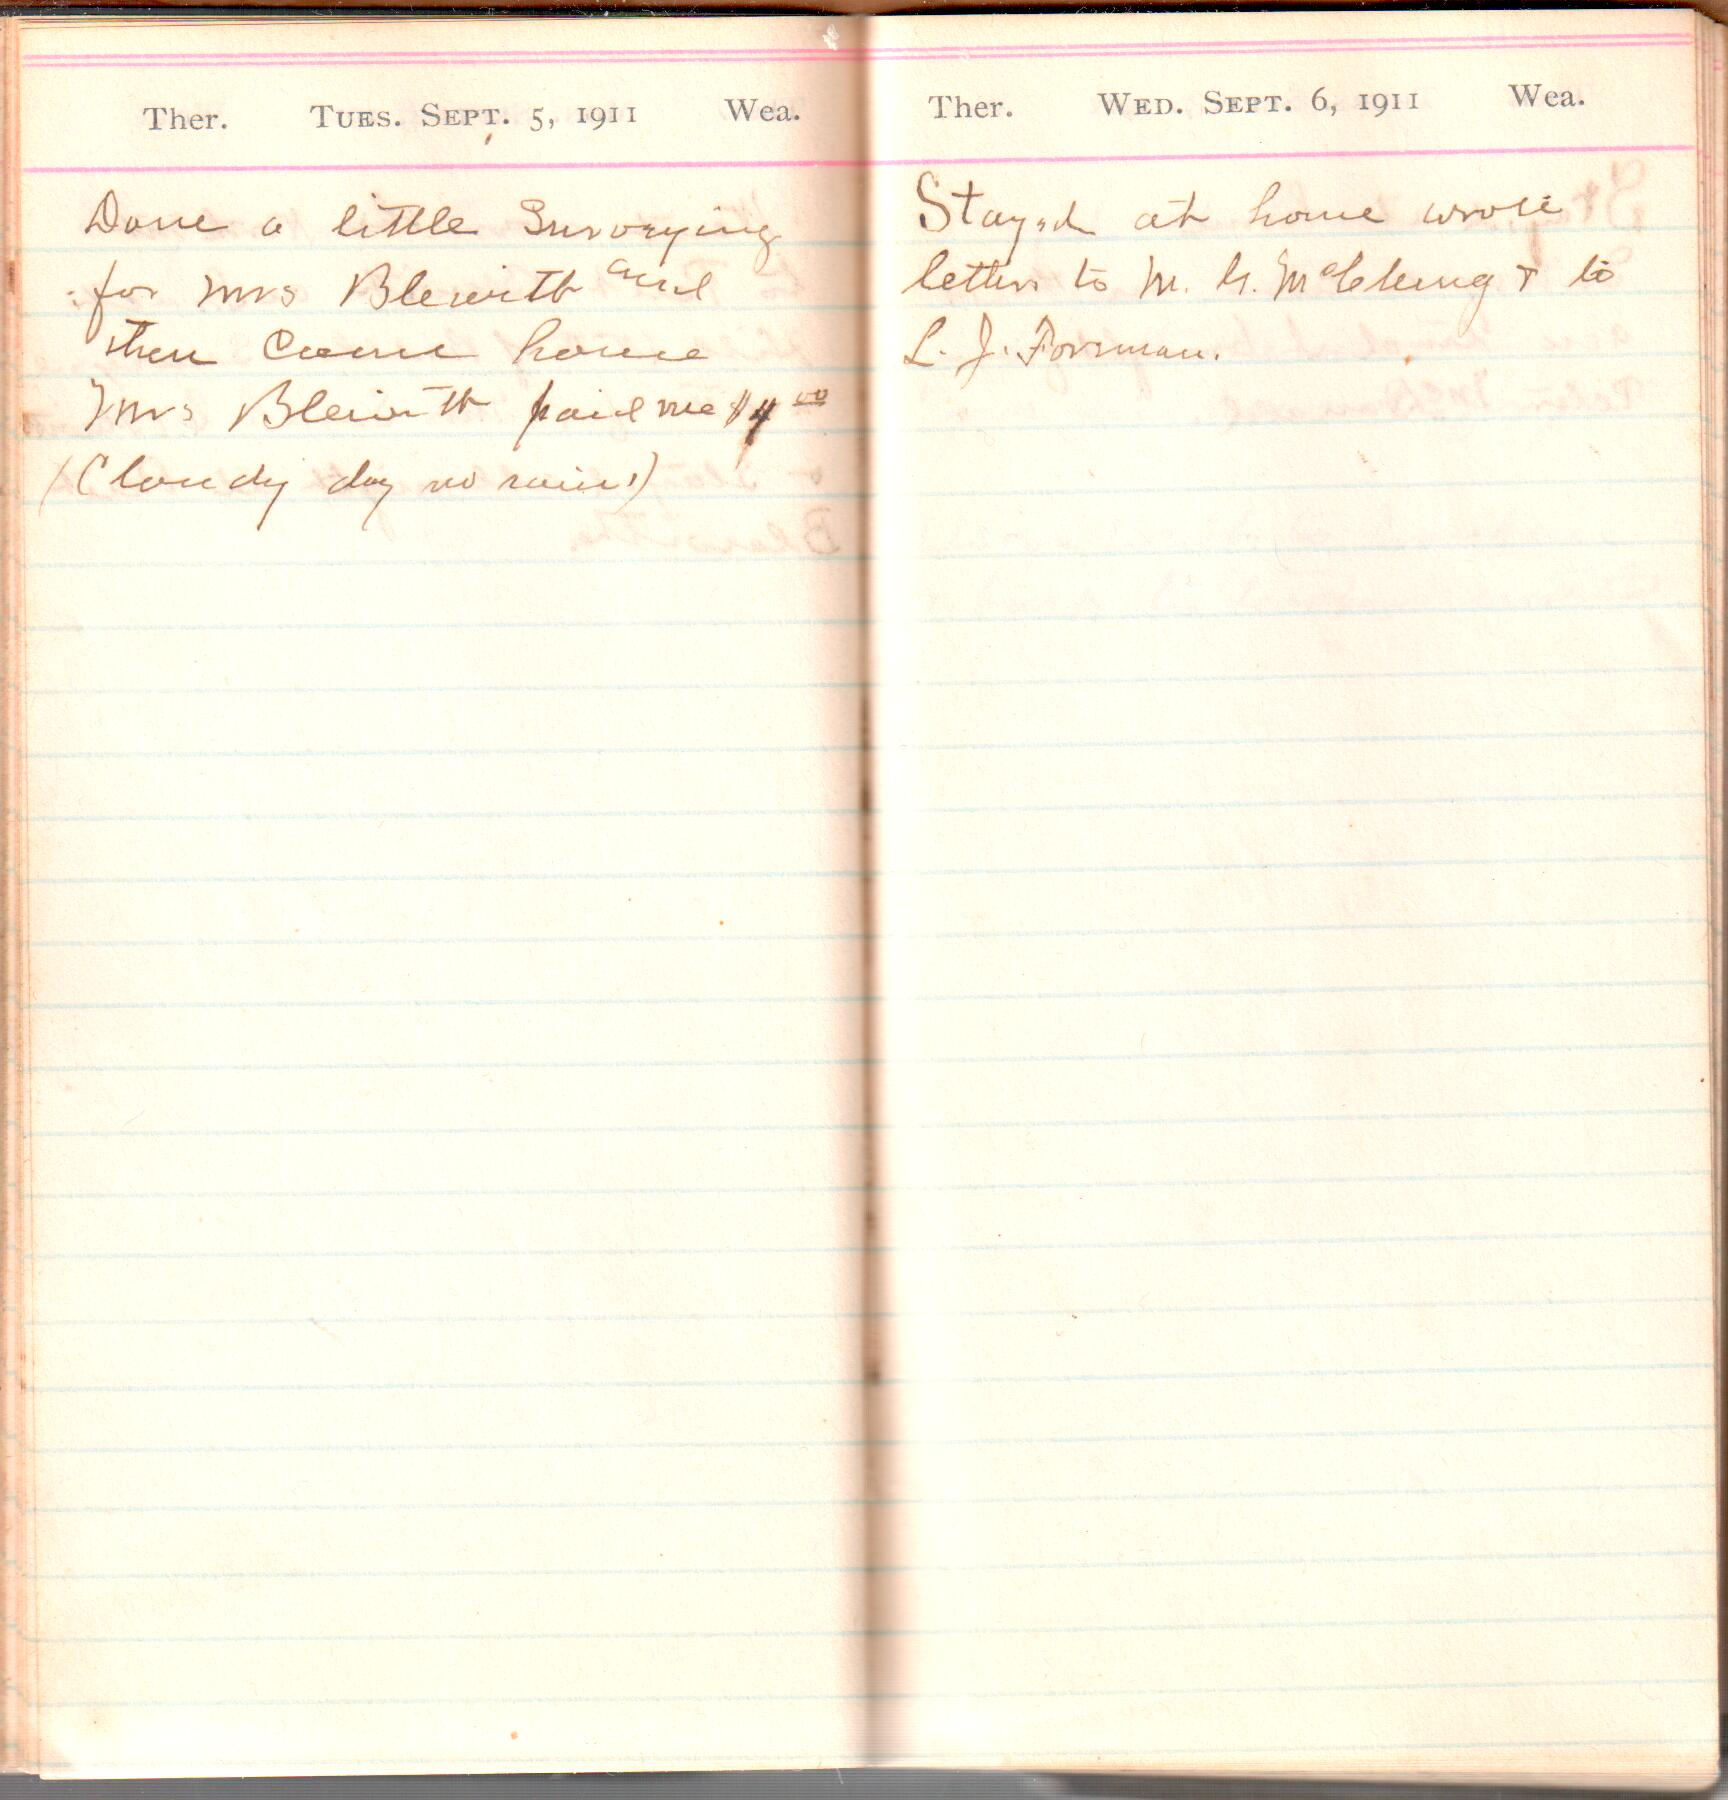 Ther. Tues. Sept. 5, 1911 Wea.
Done a little Surveying
for Mrs Blewitt and
then Came home
Mrs Blewitt paid me $4 00
(Cloudy day no rain.)
Ther. Wed. Sept. 6, 1911 Wea.
Stayed at home wrote
letters to M. G. McClung & to
L. J. Forman.